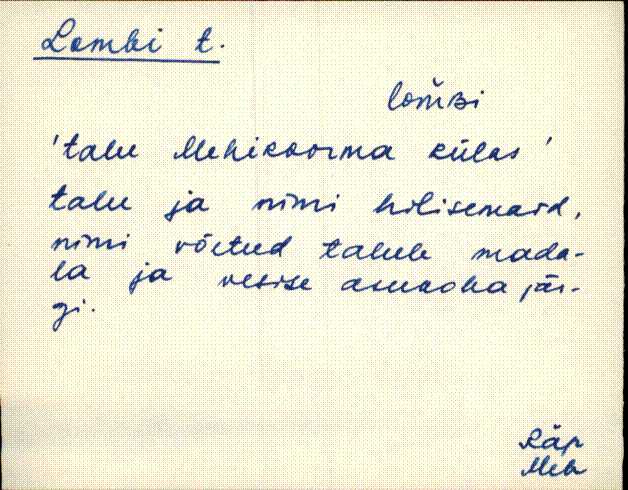 Lombi t.
lom̆ʙi
'talu Mehikoorma külas'
talu ja nimi hilisemaid,
nimi võetud talule mada-
la ja vesise asukoha jär-
gi.
Räp
Meh